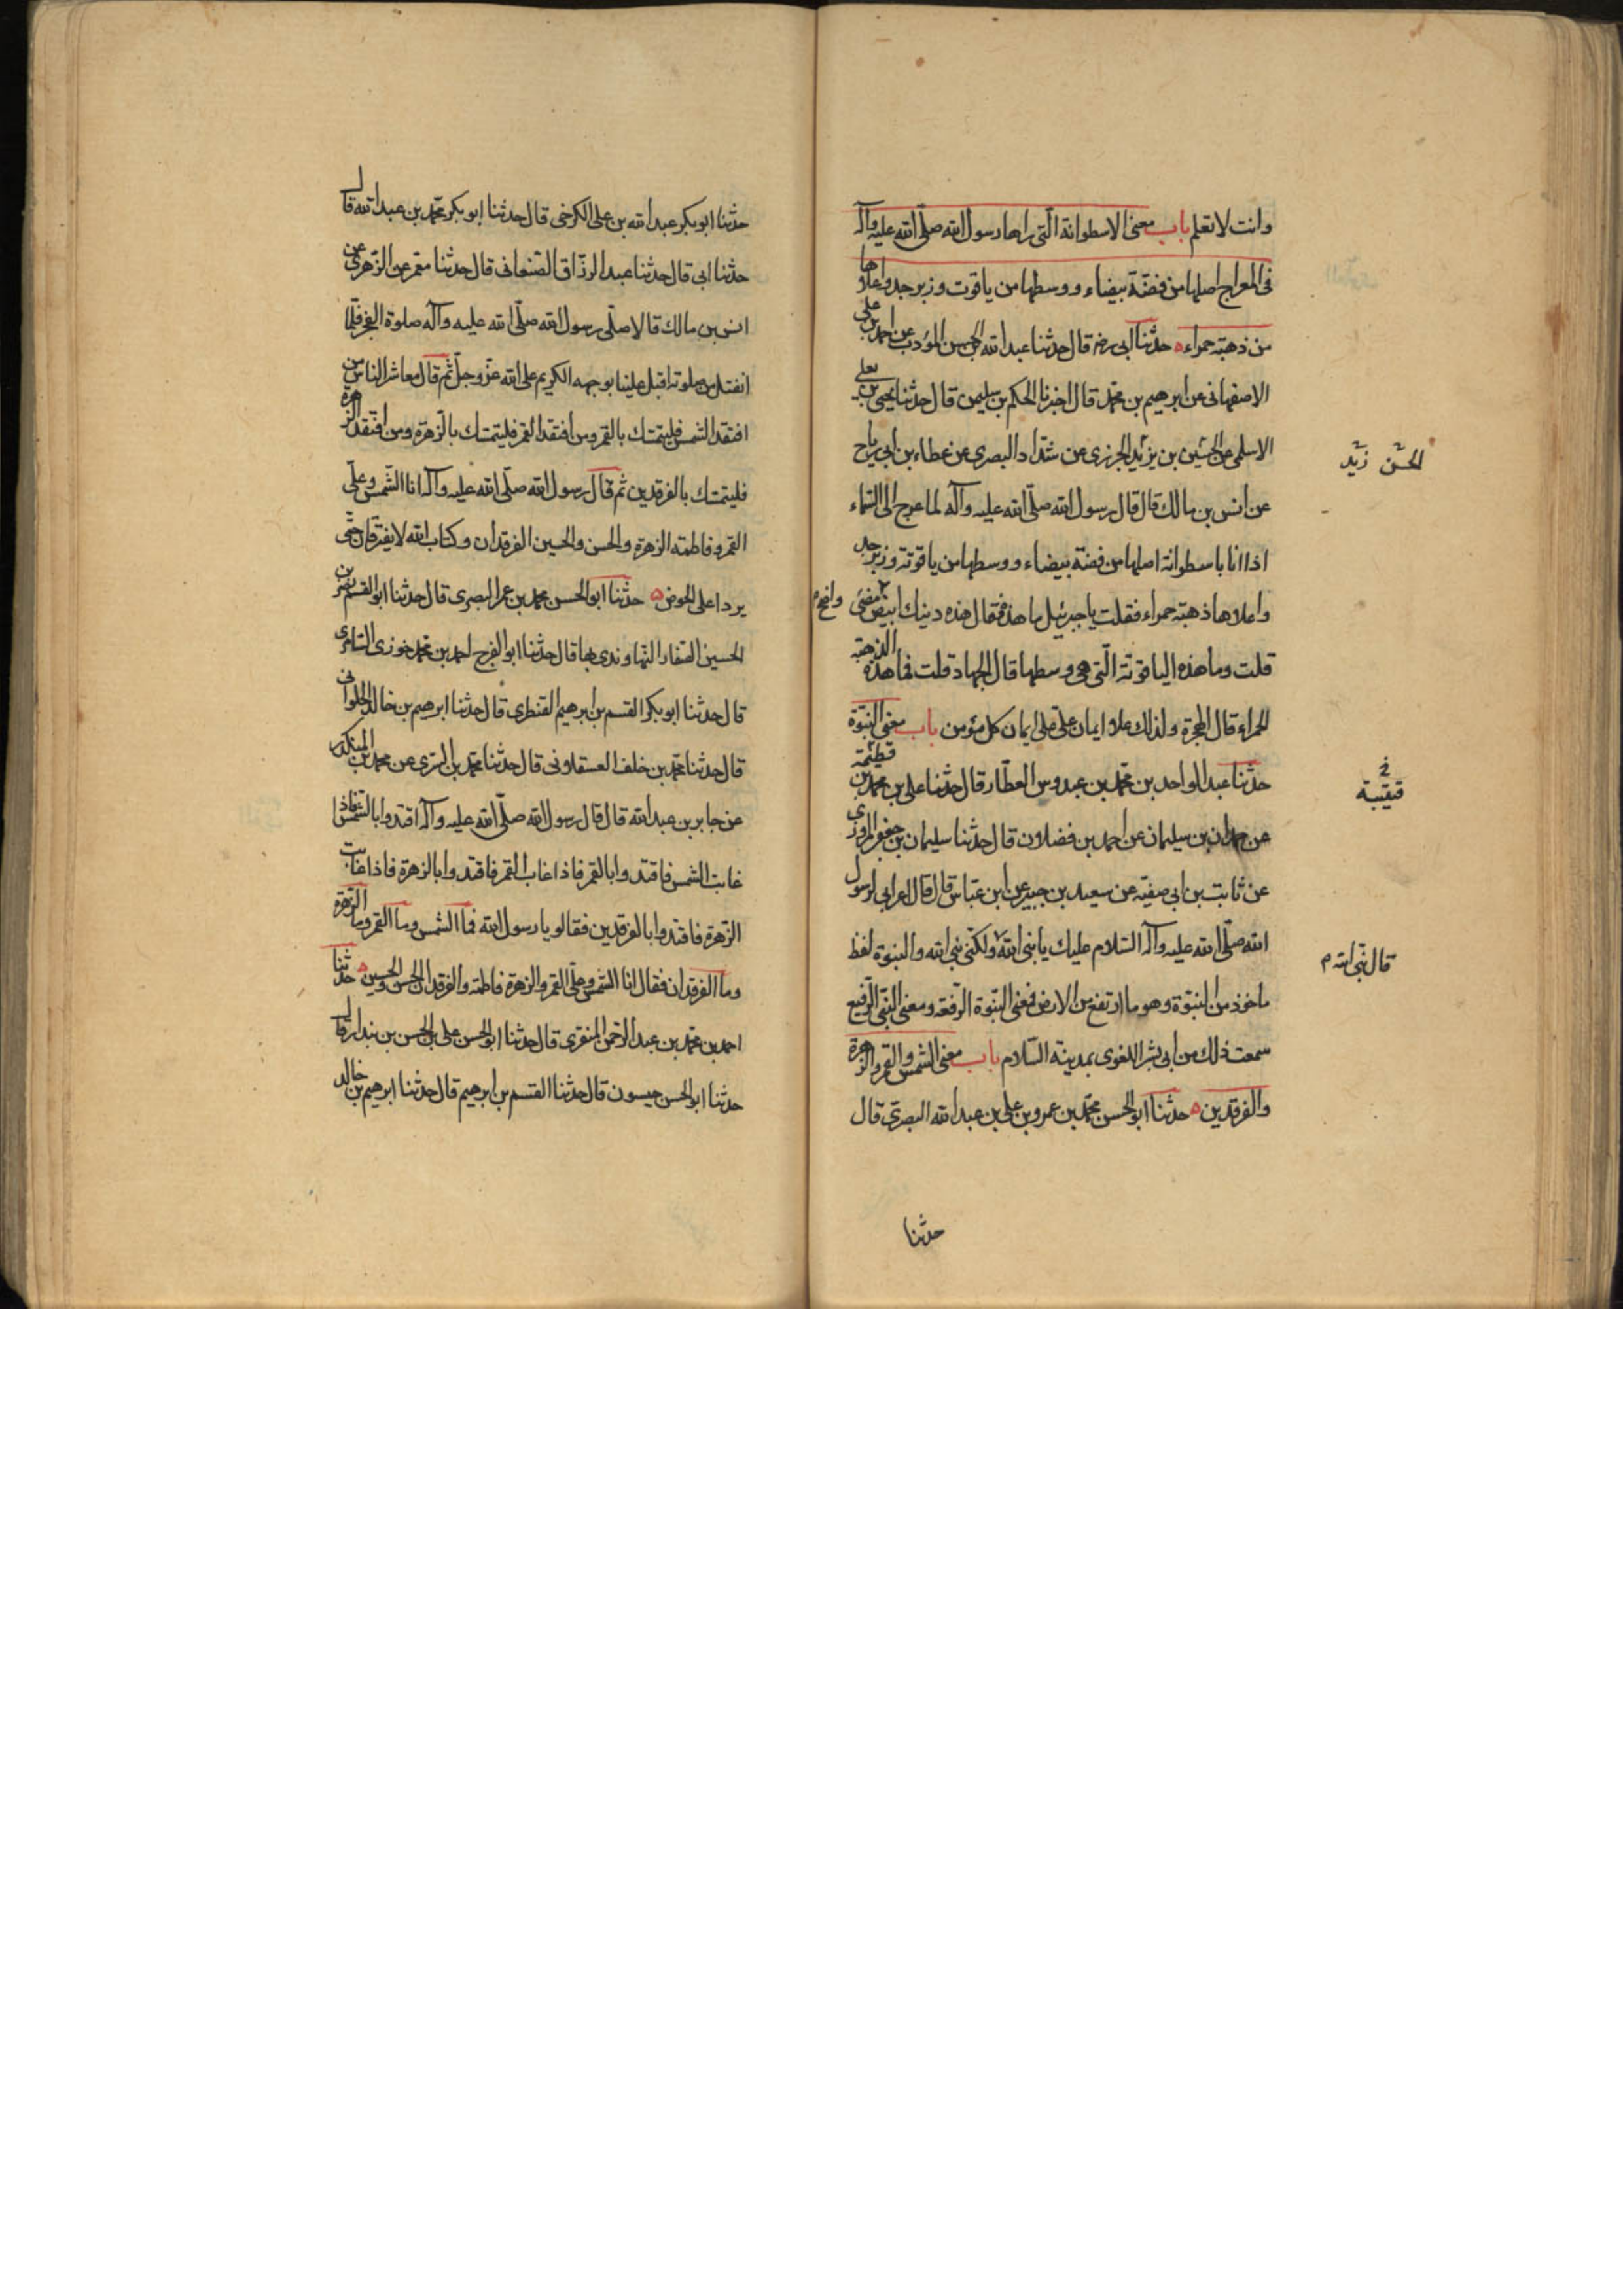 وانت لا تعلم باب معنى الاسطوانة التى راها رسول الله صلى الله عليه وآله
فى المعراج اصلها من فضة بيضاء ووسطها من ياقوت وزبرجد واعلاها
من ذهبة حمراء حدثنا ابى رضه قال حدثنا عبد الله بن الحسن المؤدب عن احمد بن على
الاصفهانى عن ابرهيم بن محمد قال اخبرنا الحكم بن سليمن قال حدثنا يحيى بن يعلى
الاسلمى عن الحسين بن يزيد الجزرى عن شداد البصرى عن عطاء بن ابى رياح
الحسن زيد
عن انس بن مالك قال قال رسول الله صلى الله عليه وآله لما عرج الى السماء
اذا انا باسطوانة اصلها من فضة بيضاء ووسطها من ياقوتة وزبرجد
واعلاها ذهبة حمراء فقلت يا جبرئيل ما هذه فقال هذه دينك ابيض مضىء واضح م
قلت وما هذه الياقوتة التى هى وسطها قال الجهاد قلت فما هذه الذهبة
الحمراء قال الهجرة ولذلك علا ايمان على على ايمان كل مؤمن باب معنى النبوة
حدثنا عبد الواحد بن محمد بن عبدوس العطار قال حدثنا على بن محمد بن قطيبة
قتيبة
عن حمدان بن سليمان عن احمد بن فضلان قال حدثنا سليمان بن جعفر المروزى
عن ثابت بن ابى صفية عن سعيد بن جبير عن ابن عباس قال قال اعرابى لرسول
الله صلى الله عليه وآله السلام عليك يا نبئ الله ولكنى نبى الله والنبوة لفظ
قال نبى الله م
ماخوذ من النبوة وهو ما ارتفع من الارض فمعنى النبوة الرفعة ومعنى النبى الرفيع
سمعت ذلك من ابى بشر اللغوى بمدينة السلام باب معنى الشمس والقمر والزهرة
والفرقدين حدثنا ابو الحسن محمد بن عمرو بن على بن عبد الله البصرى قال
حدثنا
حدثنا ابو بكر عبد الله بن على الكرخى قال حدثنا ابو بكر محمد بن عبد الله قال
حدثنا ابى قال حدثنا عبد الرزاق الصنعانى قال حدثنا معمر عن الزهرى عن
انس بن مالك قالا صلى رسول الله صلى الله عليه وآله صلوة الفجر فلما
انفتل من صلوته اقبل علينا بوجهه الكريم على الله عز وجل ثم قال معاشر الناس من
افتقد الشمس فليتمسك بالقمر ومن افتقد القمر فليتمسك بالزهرة ومن افتقد الزهرة
فليتمسك بالفرقدين ثم قال رسول الله صلى الله عليه وآله انا الشمس وعلى
القمر وفاطمة الزهرة والحسن والحسين الفرقدان وكتاب الله لا يفترقان حتى
يردا على الحوض حدثنا ابو الحسن محمد بن عمر البصرى قال حدثنا ابو القسم نصر بن
الحسين الصفار النهاوندى بها قال حدثنا ابو الفرج احمد بن محمد خوزى السامرى
قال حدثنا ابو بكر القسم بن ابرهيم القنطرى قال حدثنا ابرهيم بن خالد الحلوانى
قال حدثنا محمد بن خلف العسقلانى قال حدثنا محمد بن السرى عن محمد بن المنكدر
عن جابر بن عبد الله قال قال رسول الله صلى الله عليه وآله اقتدوا بالشمس فاذا
غابت الشمس فاقتدوا بالقمر فاذا غاب القمر فاقتدوا بالزهرة فاذا غابت
الزهرة فاقتدوا بالفرقدين فقالو يا رسول الله فما الشمس وما القمر وما الزهرة
وما الفرقدان فقال انا الشمس وعلى القمر والزهرة فاطمة والفرقدان الحسن والحسين حدثنا
احمد بن محمد بن عبد الرحمن المنقرى قال حدثنا ابو الحسن على بن الحسن بن بندار قال
حدثنا ابو الحسن حيسون قال حدثنا القسم بن ابرهيم قال حدثنا ابرهيم بن خالد